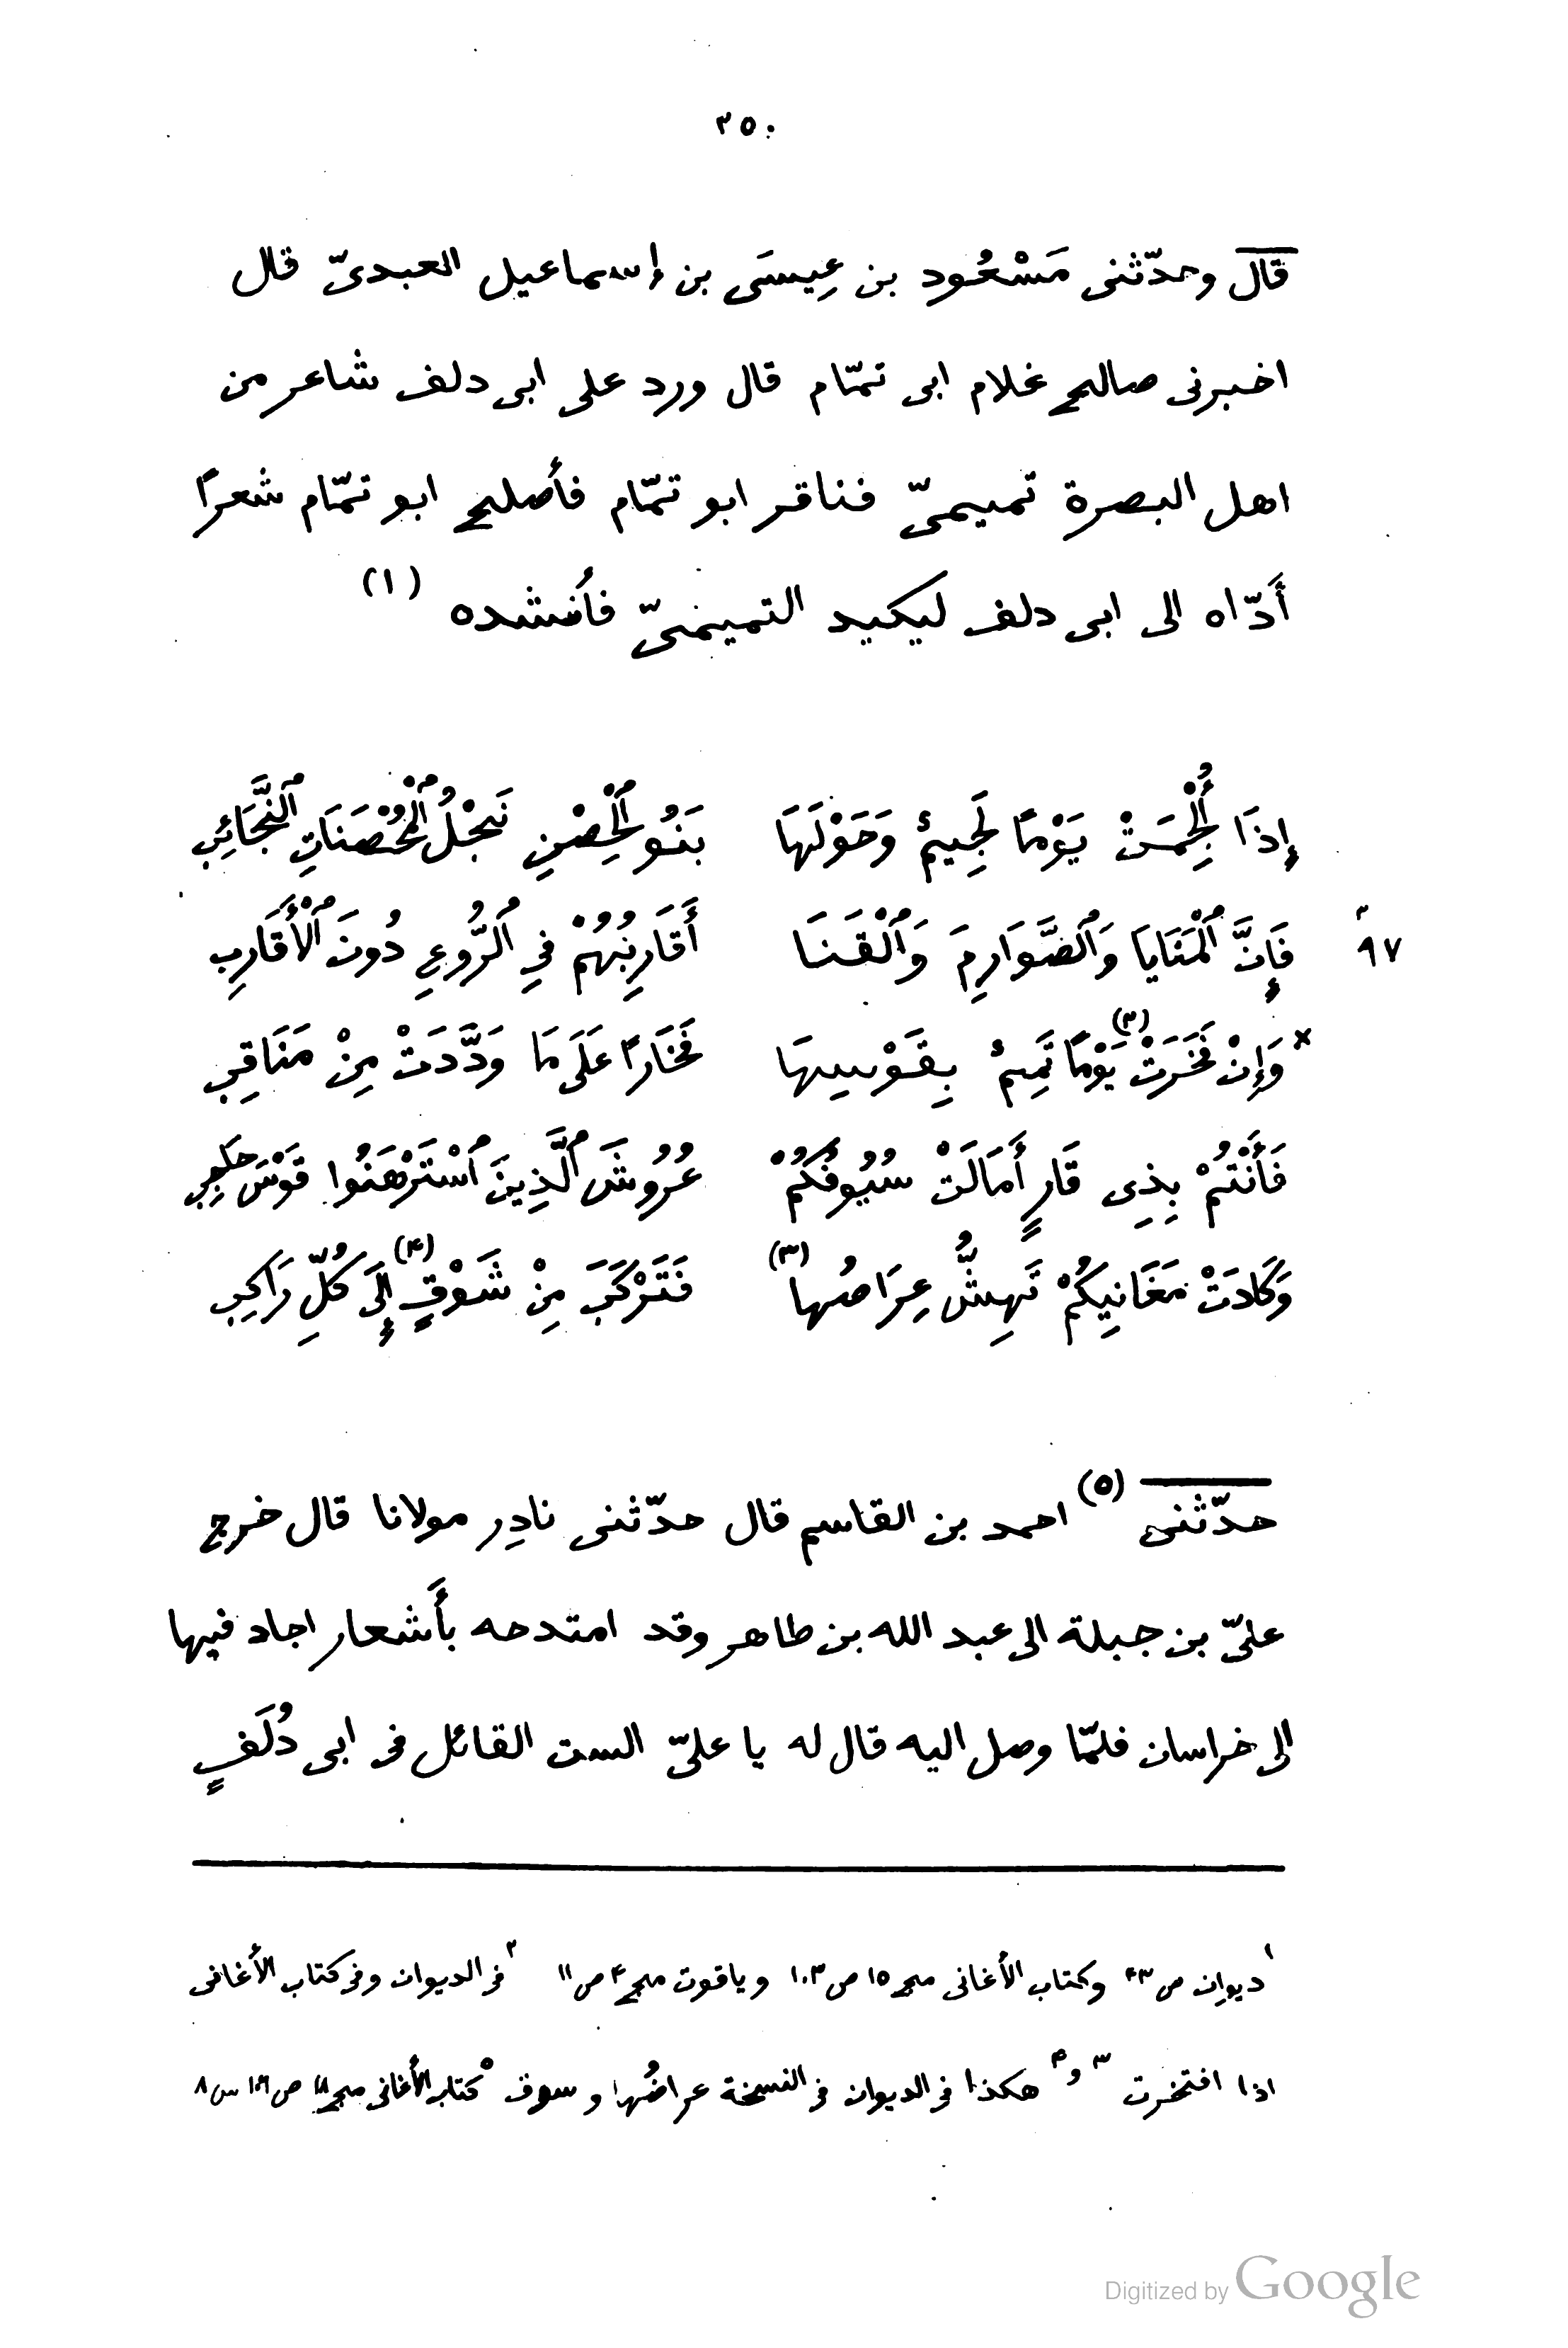 ٢٥٠
قال وحدّثنى مَسْعُود بن عِيسَى بن إسماعيل العبدىّ قال
اخبرنى صالح غلام ابى تمّام قال ورد على ابى دلف شاعر من
اهل البصرة تميمىّ فناقر ابو تمّام فأصلح ابو تمّام شعرًا
أَدّاه الى ابى دلف ليكيد التميمىّ فأنشده (١)
إِذَا أُلْجِمَتْ يَوْمًا لُجَيمٌ وَحَوْلَهَا بَنُو ٱلْحِصْنِ نَجْلُ ٱلْمُحْصَنَاتِ ٱلنَّجَائِبِ
٩٧ فَإِنَّ ٱلْمَنَايَا وَٱلصَّوَارِمَ وَٱلْقَنَا أَقَارِبُهُمْ فِي ٱلرُّوعِ دُونَ ٱلْأَقَارِبِ
× وَإِنْ فَخَرَتْ (٢) يَوْمًا تَمِيمٌ بِقَوْسِهَا فَخَارًا عَلَى مَا وَدَّدَتْ مِنْ مَنَاقِبِ
فَأَنْتُمْ بِذِى قَارٍ أَمَالَتْ سُيُوفُكُمْ عُرُوشَ ٱلَّذِينَ ٱسْتَرْهَنُوا قَوْسَ حَاجِبِ
وَكَادَتْ مَغَانِيكُمْ تَهِشُّ عِرَاصُها (٣) فَتَرْكَبَ مِنْ شَوْقٍ (٤) إِلَى كُلِّ رَاكِبِ
حدّثنى (٥) احمد بن القاسم قال حدّثنى نادِر مولانا قال خرج
علىّ بن جبلة الى عبد الله بن طاهر وقد امتدحه بأَشعار اجاد فيها
الى خراسان فلمّا وصل اليه قال له يا علىّ الست القائل فى ابى دُلَفٍ
١ ديوان ص ٤٣ وكتاب الأغانى مج ١٥ ص ١٠٣ وياقوت مج ٤ ص ١١ ٢ فى الديوان وفى كتاب الأغانى
اذا افتخرت ٣ و ٤ هكذا فى الديوان فى النسخة عراضُها و سوف ٥ كتاب الأغانى مج ١٨ ص ١٠٦ س ٨
Digitized by Google